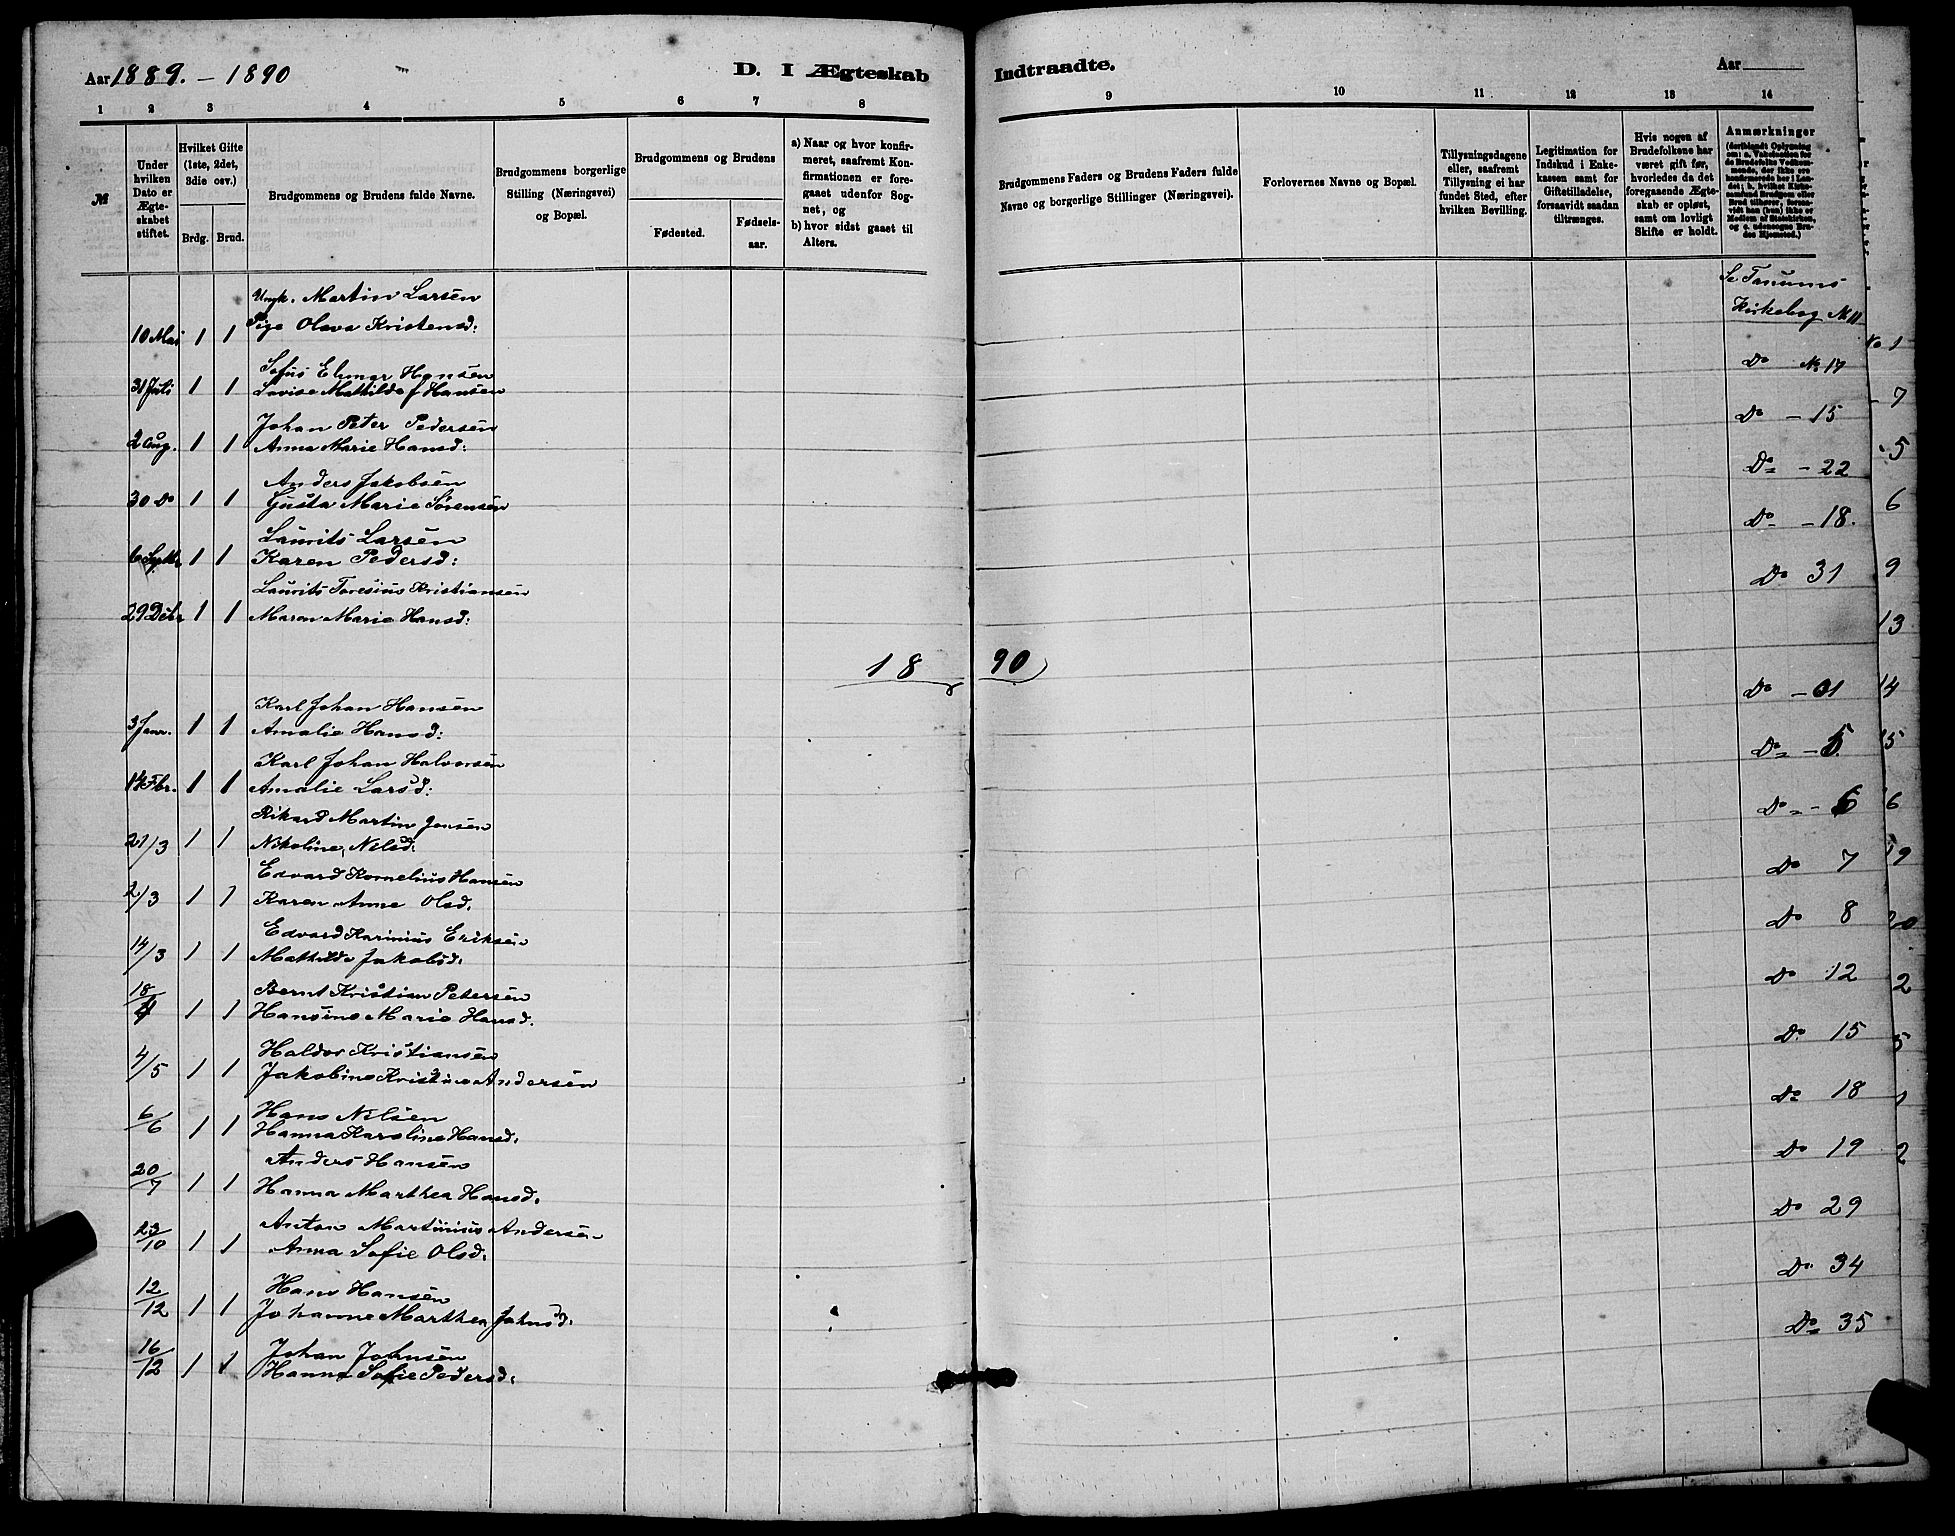 Aar 1889. – 1890
D. I Ægteskab Indtraadte.
Aar
1 2 3 4 5 6 7 8 9 10 11 12 13 14
№
Under hvilken Dato er Ægteskabet stiftet.
Hvilket Gifte (1ste, 2det, 3die osv.)
Brdg. Brud.
Brudgommens og Brudens fulde Navne.
Brudgommens borgerlige Stilling (Næringsvei) og Bopæl.
Brudgommens og Brudens
Fødested.
Fødsels-aar.
a) Naar og hvor konfirmeret, saafremt Konfirmationen er foregaaet udenfor Sognet, og
b) hvor sidst gaaet til Alters.
Brudgommens Faders og Brudens Faders fulde Navne og borgerlige Stillinger (Næringsvei).
Forlovernes Navne og Bopæl.
Tillysningsdagene eller, saafremt Tillysning ei har fundet Sted, efter hvilken Bevilling.
Legitimation for Indskud i Enkekassen samt for Giftetilladelse, forsaavidt saadan tiltrænges.
Hvis nogen af Brudefolkene har været gift før, hvorledes da det foregaaende Ægteskab er opløst, samt om lovligt Skifte er holdt.
Anmærkninger
(deriblandt Oplysning om: a. Vakcination for de Brudefolks Vedkommende, der ikke ere konfirmerede her i Landet; b. hvilket Kirkesamfund Brudgom eller Brud tilhører, forsaavidt han (hun) ikke er Medlem af Statskirken, og c. udensogns Brudes Hjemsted.)
Ungk. Martin Larsen Se Tanums
10 Mai 1 1 Pige Olava Kristensd: Kirkebog № 11
Sofus Elmar Hansen Do № 17
31 Juli 1 1 Lovise Mathilde J Hansen
Johan Peter Pedersen Do – 15
2 Aug. 1 1 Anna Marie Hansd:
Anders Jakobsen Do – 22
30 Do 1 1 Gusta Marie Sørensen
Laurits Larsen Do – 18.
6 Septbr 1 1 Karen Pedersd:
Laurits Toresius Kristiansen Do 31
29 Debr 1 1 Maren Marie Hansd:
1890
Karl Johan Hansen Do – 01
3 Janr. 1 1 Amalie Hansd:
Karl Johan Halvorsen Do – 5
14 Fbr. 1 1 Amalie Larsd:
Rikard Martin Jensen Do – 6
21/3 1 1 Nikoline Nilsd:
Edvard Kornelius Hansen Do 7
2/3 1 1 Karen Anne Olsd.
Edvard Karinius Eriksen Do 8
14/3 1 1 Mathilde Jakobsd.
Bernt Kristian Petersen Do 12
18/4 1 1 Hansine Marie Hansd.
Haldor Kristiansen Do 15
4/5 1 1 Jakobine Kristine Andersen
Hans Nilsen Do 18
6/6 1 1 Hanna Karoline Hansd.
Anders Hansen Do 19
20/7 1 1 Hanna Marthea Hansd.
Anton Martinius Andersen Do 29
23/10 1 1 Anna Sofie Olsd.
Hans Hansen Do 34
12/12 1 1 Johanne Marthea Johnsd.
Johan Johnsen Do 35
16/12 1 1 Hanna Sofie Pedersd.
No 1
7
5
6
9
13
14
15
6
19
20
2
5
1
2